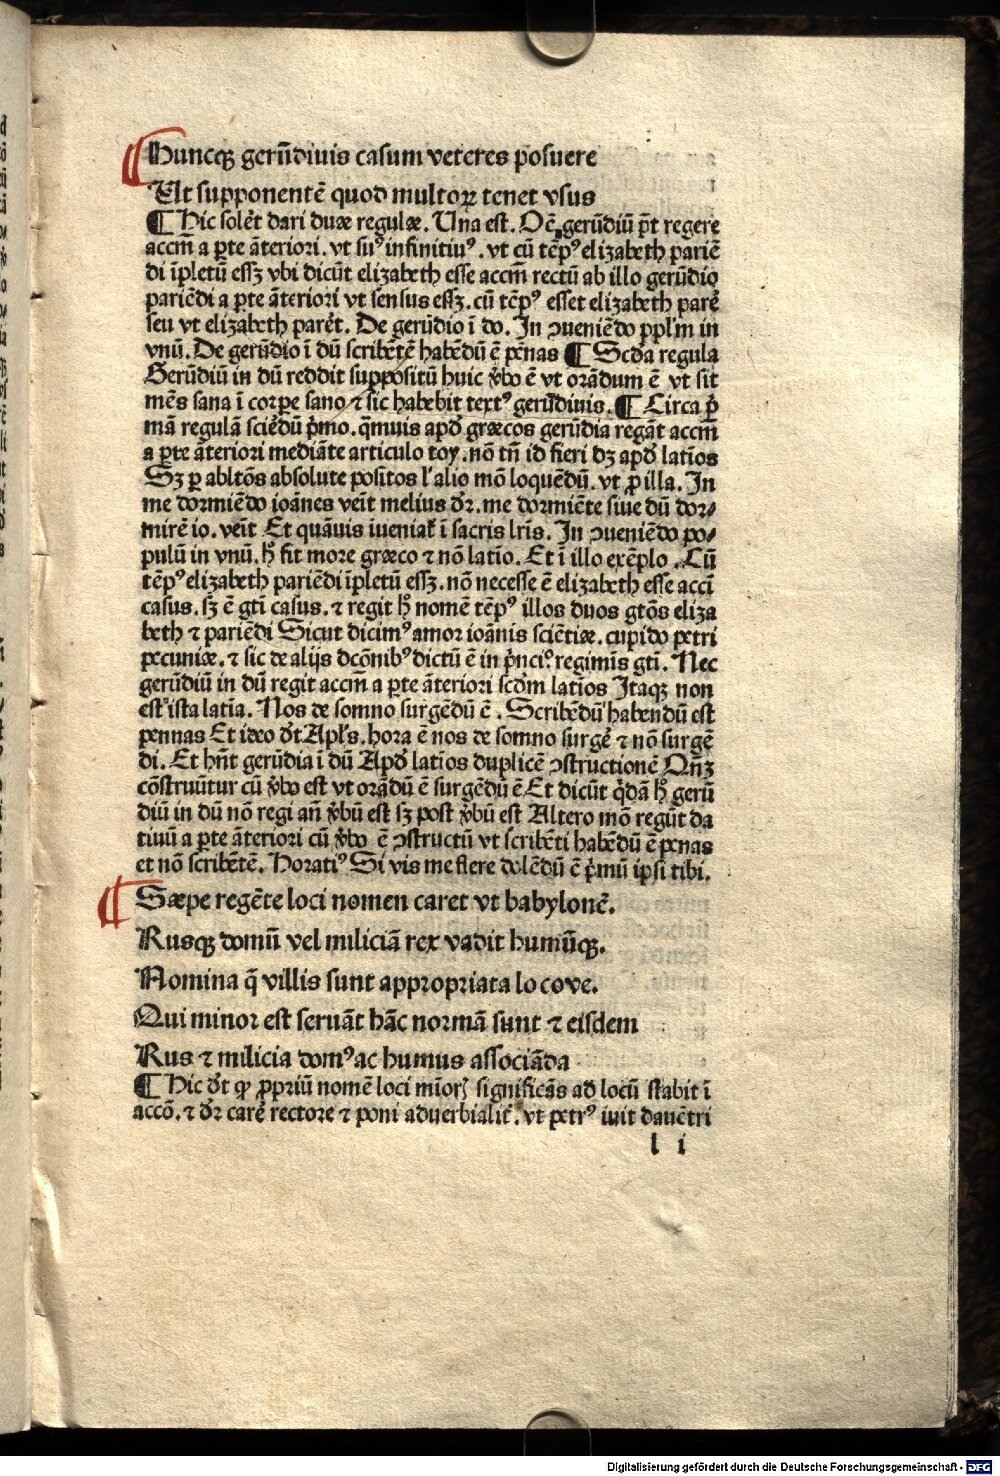 Huncqꝫ gerūdiuis casum veteres posuere
Ut supponentē quod multoꝝ tenet vsus
¶ Hic solēt dari duæ regulæ. Una est. Oē gerūdiū pōt regere
accm̄ a ꝑte āteriori. vt suꝰ infinitiuꝰ. vt cū tēpꝰ elizabeth pariē
di īpletū essꝫ vbi dicūt elizabeth esse accm̄ rectū ab illo gerūdio
pariēdi a ꝑte āteriori vt sensus essꝫ. cū tēpꝰ esset elizabeth parē
seu vt elizabeth parēt. De gerūdio ī do. In ꝯueniēdo ppl'm in
vnū. De gerūdio ī dū scribētē habēdū ē pēnas ¶ Scd̄a regula
Gerūdiū in dū reddit suppositū huic v̄bo ē vt orādum ē vt sit
mēs sana ī corpe sano ⁊ sic habebit textꝰ gerūdiuis. ¶ Circa p̄
mā regulā sciēdū p̄mo. q̄muis apd̄ græcos gerūdia regāt accm̄
a ꝑte āteriori mediāte articulo toy. nō tn̄ id fieri dꝫ apd̄ latīos
Sꝫ ꝑ abltōs absolute positos l' alio mō loquēdū. vt ꝓ illa. In
me dormiēdo ioānes veīt melius dr̄. me dormiēte siue dū dor⸗
mirē io. veīt Et quāuis iueniat̄ ī sacris lr̄is. In ꝯueniēdo po⸗
pulū in vnū. h̄ fit more græco ⁊ nō latīo. Et ī illo exēplo. Cū
tēpꝰ elizabeth pariēdi īpletū essꝫ. nō necesse ē elizabeth esse accī
casus. sꝫ ē gtī casus. ⁊ regit h̄ nomē tēpꝰ illos duos gtōs eliza
beth ⁊ pariēdi Sicut dicimꝰ amor ioānis sciētiæ. cupido petri
pecuniæ. ⁊ sic de alijs dcōnibꝰ dictū ē in p̄nciꝰ regimīs gtī. Nec
gerūdiū in dū regit accm̄ a ꝑte āteriori scd̄m latīos Itaqꝫ non
est ista latīa. Nos de somno surgēdū ē. Scribēdū habendū est
pennas Et ideo dīt Apl's. hora ē nos de somno surgē ⁊ nō surgē
di. Et hn̄t gerūdia ī dū Apd̄ latīos duplicē ꝯstructionē Qn̄ꝫ
cōstruūtur cū v̄bo est vt orādū ē surgēdū ē Et dicūt q̄dā h̄ gerū
diū in dū nō regi an̄ v̄bū est sꝫ post v̄bū est Altero mō regūt da
tiuū a ꝑte āteriori cū v̄bo ē ꝯstructū vt scribēti habēdū ē pēnas
et nō scribētē. Horatiꝰ Si vis me flere dolēdū ē p̄mū ipsi tibi.
Sæpe regēte loci nomen caret vt babylonē.
Rusqꝫ domū vel miliciā rex vadit humūqꝫ.
Nomina q̄ villis sunt appropriata loco ve.
Qui minor est seruāt hāc normā sunt ⁊ eisdem
Rus ⁊ milicia domꝰ ac humus associāda
¶ Hic dīt ꝙ ꝓpriū nomē loci mīorꝭ significās ad locū stabit ī
accō. ⁊ dr̄ carē rectore ⁊ poni aduerbialit̄. vt petrꝰ iuit dauētri
l i
Digitalisierung gefördert durch die Deutsche Forschungsgemeinschaft - DFG